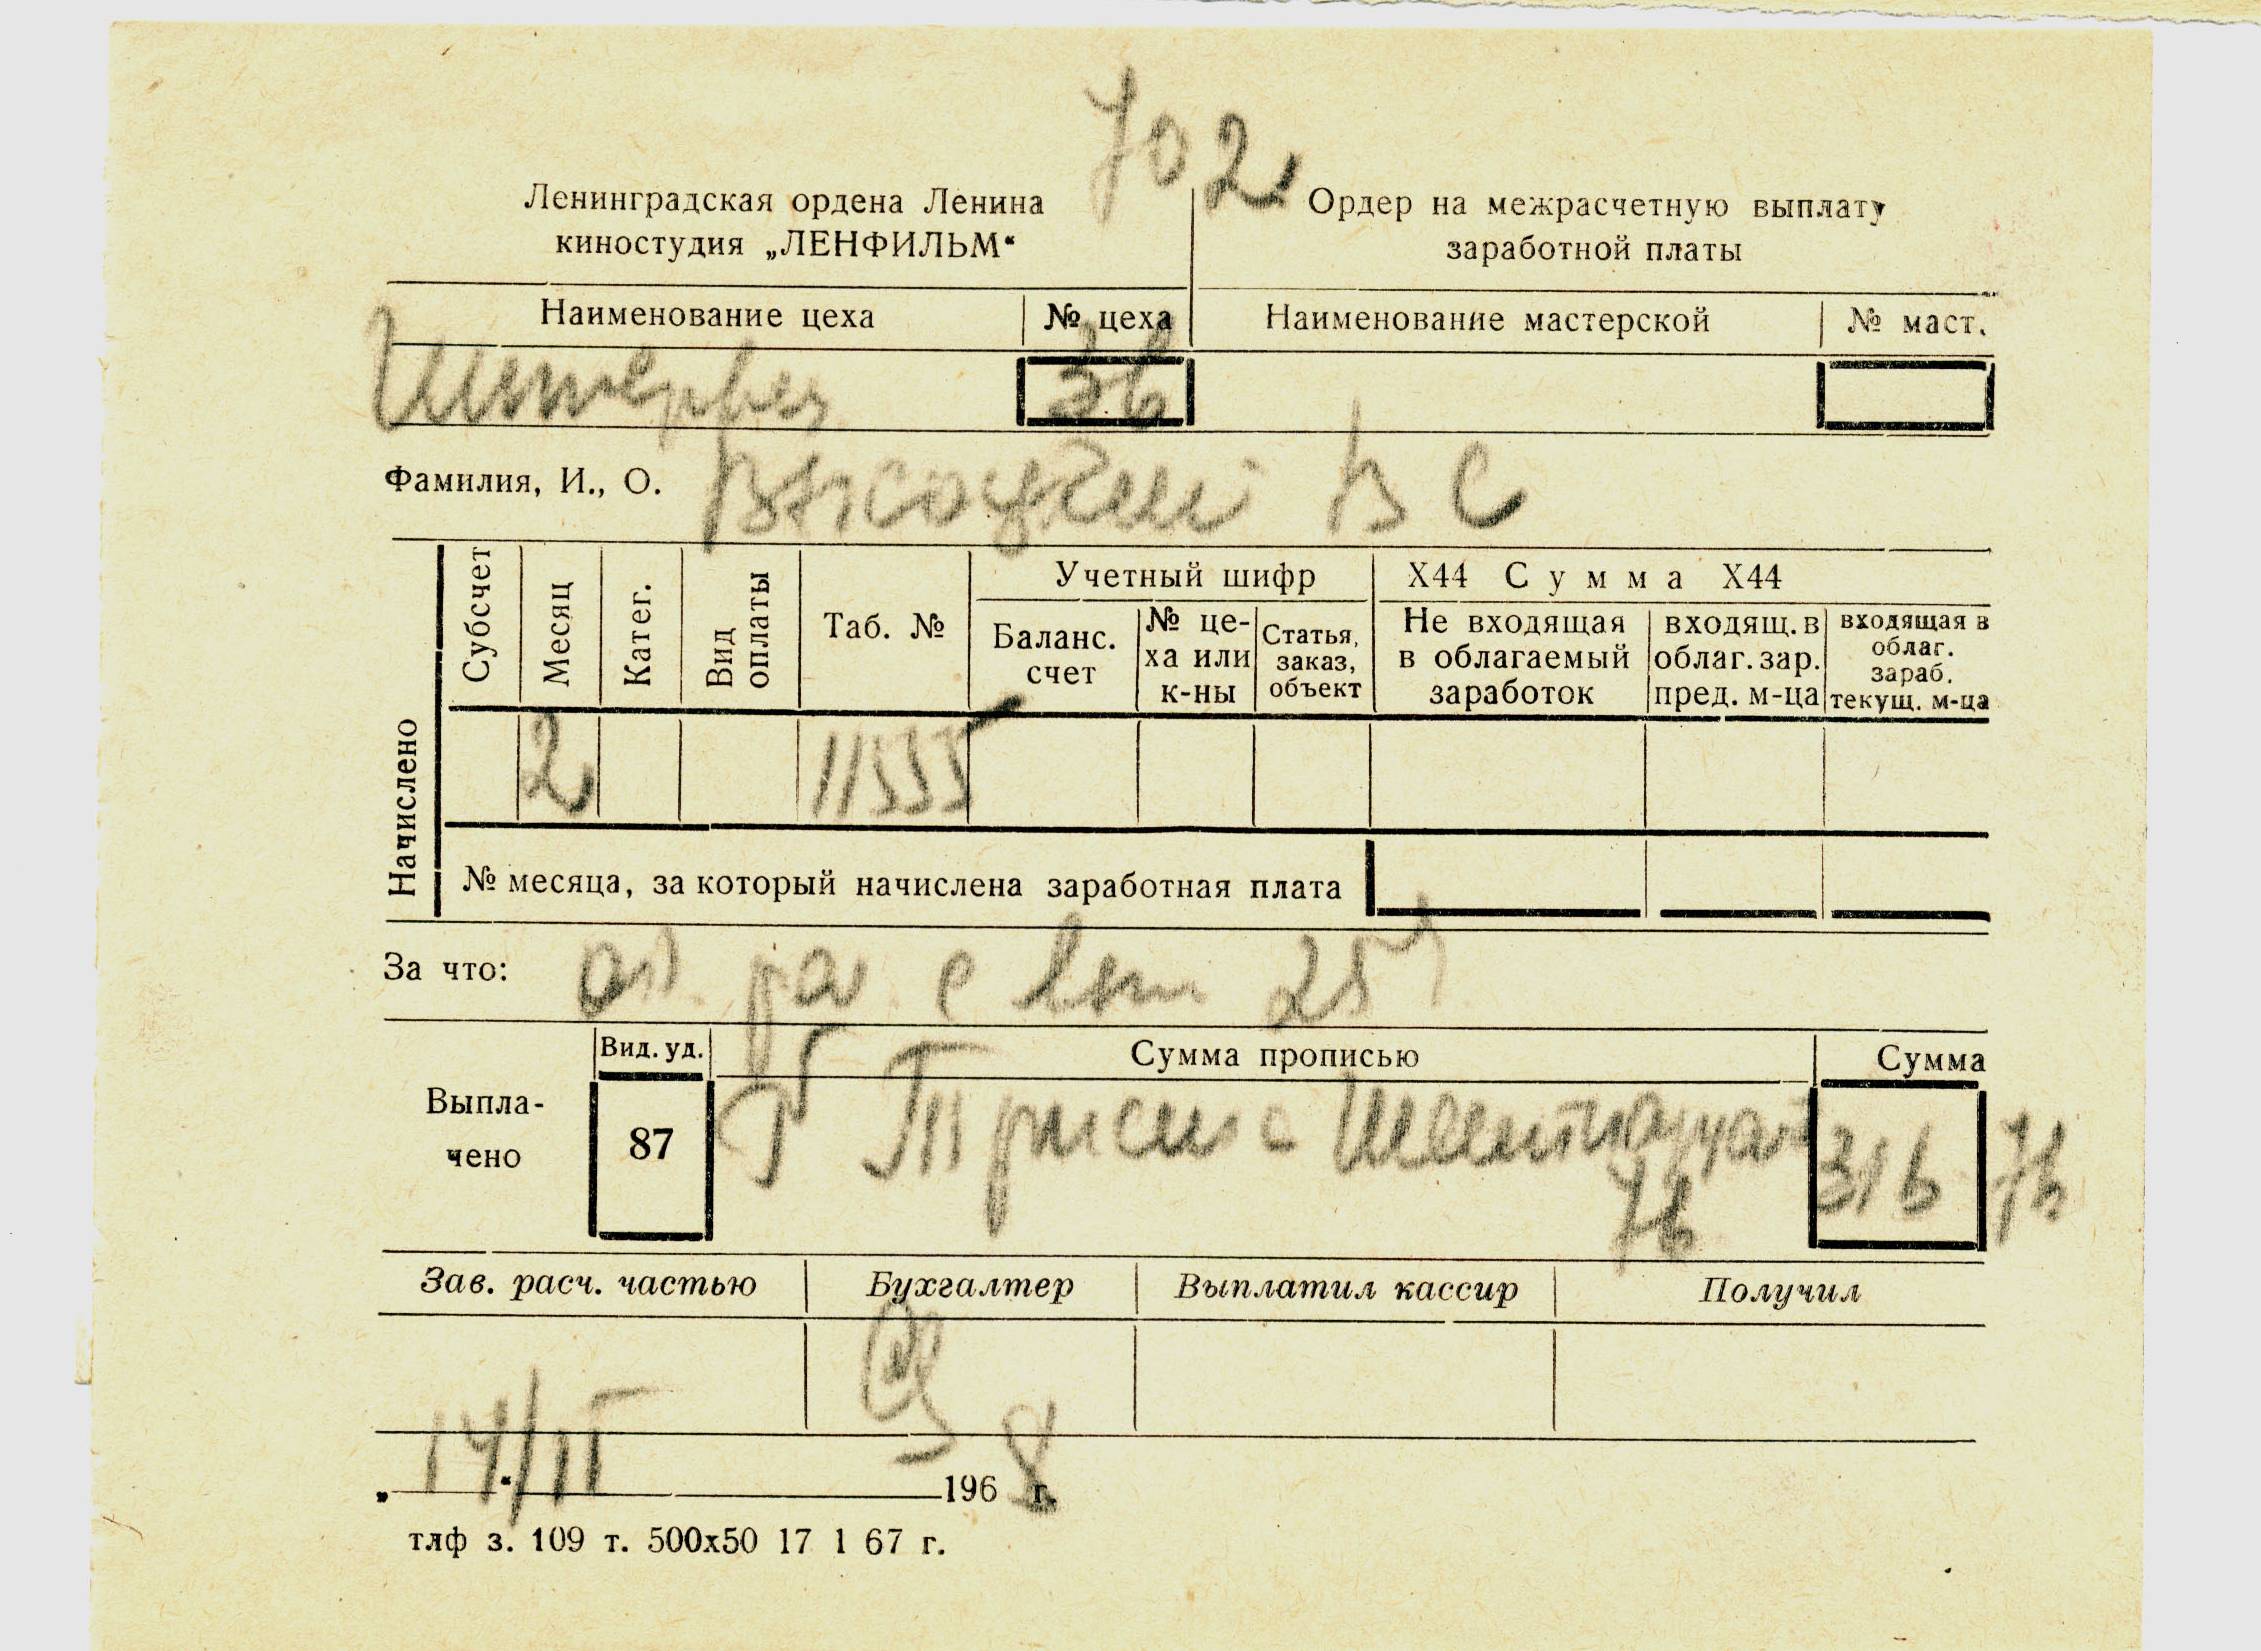 702
Ленинградская ордена Ленина
киностудия „ЛЕНФИЛЬМ“
Ордер на межрасчетную выплату
заработной платы
Наименование цеха № цеха Наименование мастерской № маст.
36
Фамилия, И., О. Высоцкий В С
Начислено
Субсчет Месяц Катег. Вид оплаты Таб. №
Учетный шифр Х44 Сумма Х44
Баланс. счет
№ це-
ха или
к-ны
Статья,
заказ,
объект
Не входящая
в облагаемый
заработок
входящ. в
облаг. зар.
пред. м-ца
входящая в
облаг.
зараб.
текущ. м-ца
2 11555
№ месяца, за который начислена заработная плата
За что: 25
Вид. уд. Сумма прописью Сумма
Выпла-
чено
87 Триста шестнадцать 316 76
76
Зав. расч. частью Бухгалтер Выплатил кассир Получил
„14/II“ 1968 г.
тлф з. 109 т. 500х50 17 1 67 г.